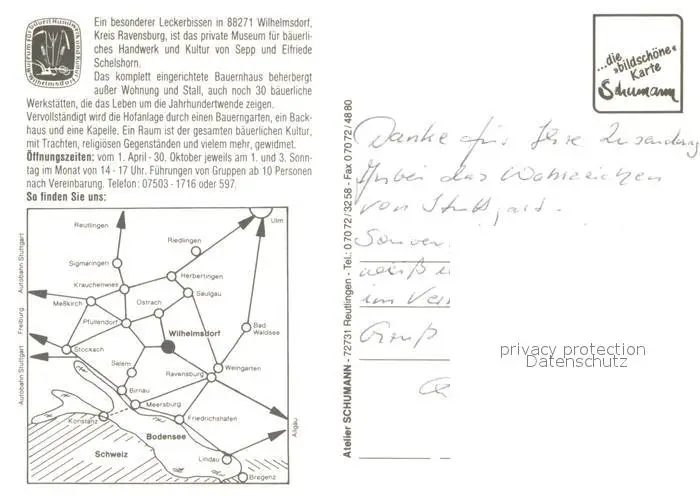 Ein besonderer Leckerbissen in 88271 Wilhelmsdorf,
Kreis Ravensburg, ist das private Museum für bäuerli-
ches Handwerk und Kultur von Sepp und Elfriede
Schelshorn.
Das komplett eingerichtete Bauernhaus beherbergt
außer Wohnung und Stall, auch noch 30 bäuerliche
Werkstätten, die das Leben um die Jahrhundertwende zeigen.
Vervollständigt wird die Hofanlage durch einen Bauerngarten, ein Back-
haus und eine Kapelle. Ein Raum ist der gesamten bäuerlichen Kultur,
mit Trachten, religiösen Gegenständen und vielem mehr, gewidmet.
Öffnungszeiten: vom 1. April - 30. Oktober jeweils am 1. und 3. Sonn-
tag im Monat von 14 - 17 Uhr. Führungen von Gruppen ab 10 Personen
nach Vereinbarung. Telefon: 07503 - 1716 oder 597.
So finden Sie uns:
Ulm
Reutlingen
Riedlingen
Autobahn Stuttgart
Sigmaringen
Herbertingen
Krauchenwies
Saulgau
Meßkirch
Ostrach
Freiburg
Pfullendorf
Wilhelmsdorf
Bad
Waldsee
Stockach
Autobahn Stuttgart
Salem
Ravensburg
Weingarten
Birnau
Meersburg
Konstanz
Friedrichshafen
Allgäu
Bodensee
Schweiz
Lindau
Bregenz
Atelier SCHUMANN - 72731 Reutlingen - Tel.: 07072/3258 - Fax 07072/4880
...die
»bildschöne«
Karte
Schumann
Danke für Ihre Zusendung
Anbei das Wahrzeichen
von Stuttgart.
weiß
im
Gruß
privacy protection
Datenschutz